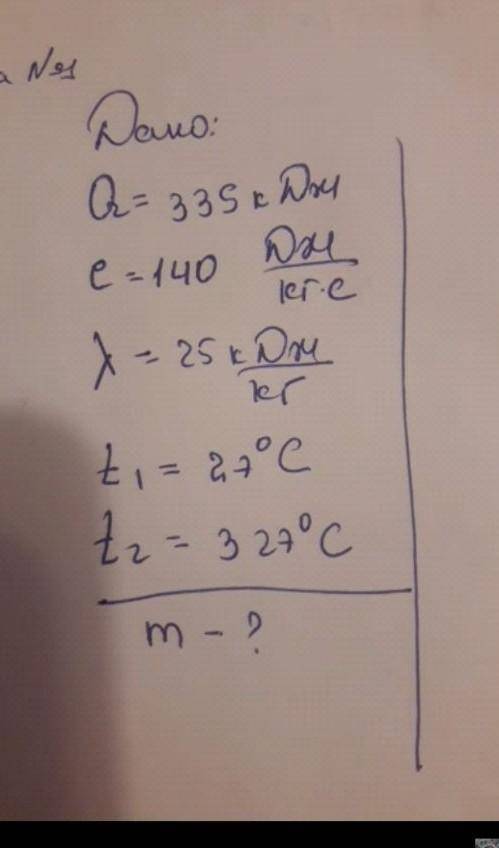 а №1
Дано:
Q = 335 кДж
c = 140 Дж/кг·с
λ = 25 кДж/кг
t₁ = 27°C
t₂ = 327°C
m - ?